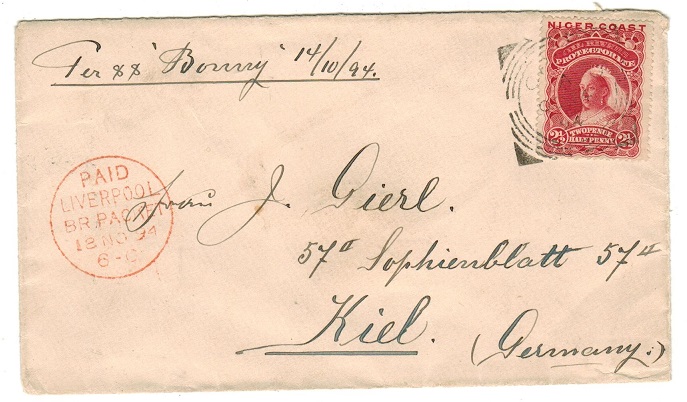 Per SS "Bonny" 14/10/94.
NIGER COAST
OIL RIVERS
PROTECTORATE
2½ TWOPENCE HALF PENNY 2½
PAID
LIVERPOOL
BR.PACKET
18 NO 94
6-
Frau J. Gierl.
57a Sophienblatt 57a
Kiel.
(Germany.)